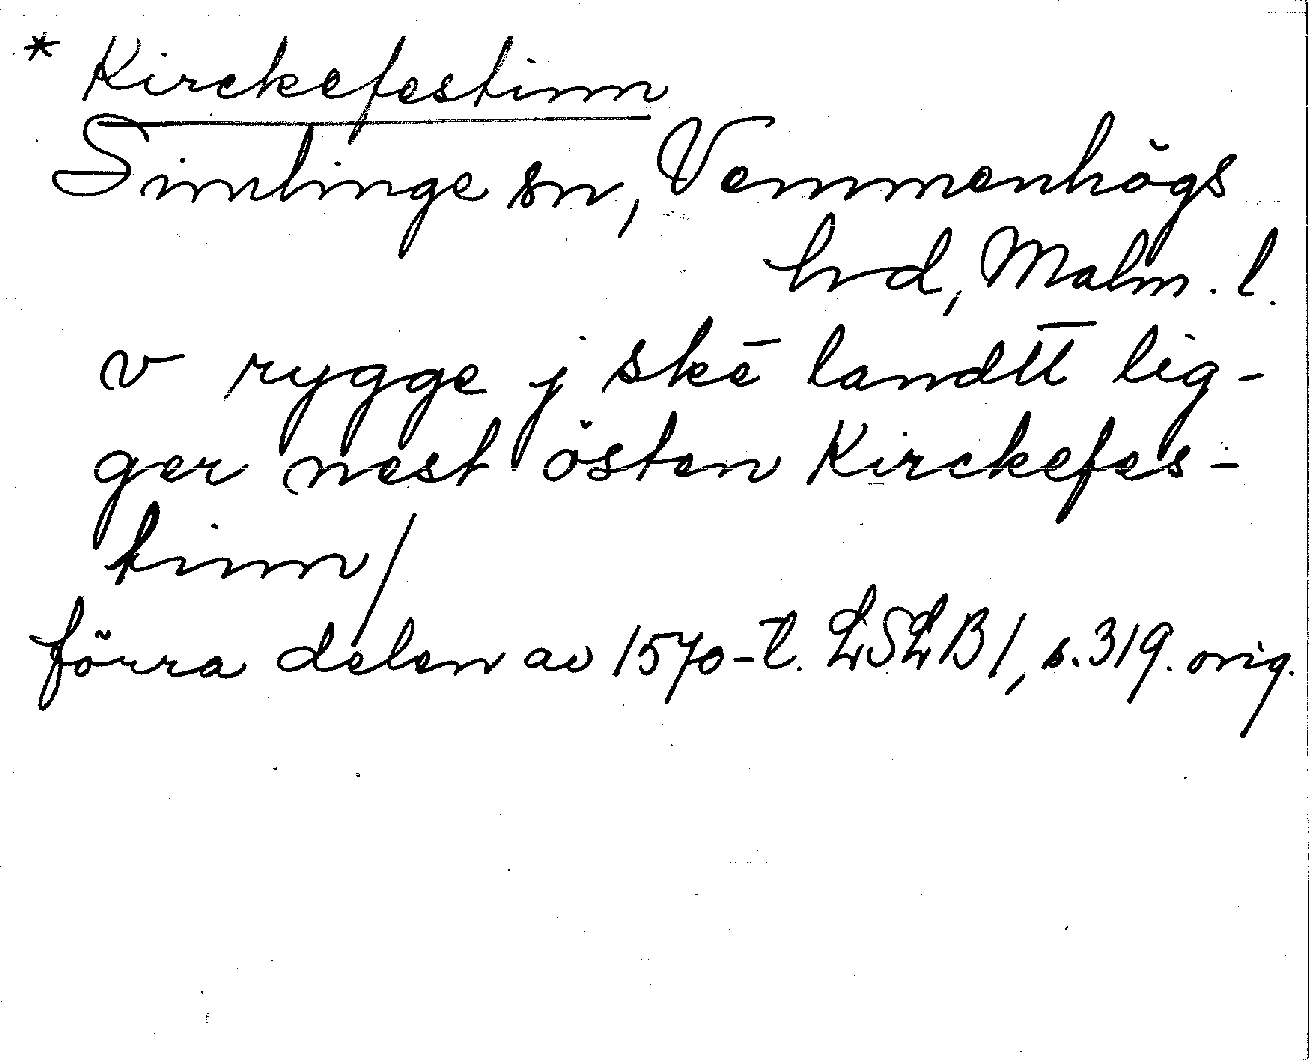 * Kirckefestinn
Simlinge sn, Vemmenhögs
hrd, Malm. l.
v rygge j skē landtt lig-
ger nest östen Kirckefes-
tinn/
förra delen av 1570-t. LSLB1, s.319. orig.